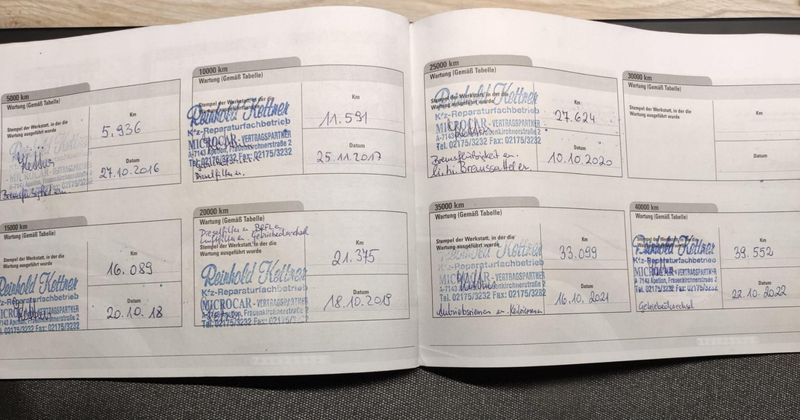 5000 km
Wartung (Gemäß Tabelle)
Stempel der Werkstatt, in der die
Wartung ausgeführt wurde
Km
5.936
Datum
27.10.2016
10000 km
Wartung (Gemäß Tabelle)
Stempel der Werkstatt, in der die
Reinhold Kettner
Kfz-Reparaturfachbetrieb
MICROCAR-VERTRAGSPARTNER
A-7143 Apetlon, Frauenkirchnerstraße 2
Tel. 02175/3232 Fax: 02175/3232
Dieselfilter
Km
11.591
Datum
25.11.2017
15000 km
Wartung (Gemäß Tabelle)
Stempel der Werkstatt, in der die
Wartung ausgeführt wurde
Reinhold Kettner
Kfz-Reparaturfachbetrieb
MICROCAR-VERTRAGSPARTNER
A-7143 Apetlon, Frauenkirchnerstraße 2
Tel. 02175/3232 Fax: 02175/3232
Km
16.089
Datum
20.10.18
20000 km
Stempel der Werkstatt, in der die
Wartung ausgeführt wurde
Reinhold Kettner
Kfz-Reparaturfachbetrieb
MICROCAR-VERTRAGSPARTNER
A-7143 Apetlon, Frauenkirchnerstraße 2
Tel. 02175/3232 Fax: 02175/3232
Km
21.375
Datum
18.10.2019
25000 km
Wartung (Gemäß Tabelle)
Stempel der Werkstatt, in der die
Reinhold Kettner
Kfz-Reparaturfachbetrieb
MICROCAR-VERTRAGSPARTNER
A-7143 Apetlon, Frauenkirchnerstraße 2
Tel. 02175/3232 Fax: 02175/3232
Bremsflüssigkeit er.
Km
27.624
Datum
10.10.2020
30000 km
Wartung (Gemäß Tabelle)
Stempel der Werkstatt, in der die
Wartung ausgeführt wurde
Km
Datum
35000 km
Wartung (Gemäß Tabelle)
Stempel der Werkstatt, in der die
Wartung ausgeführt wurde
Reinhold Kettner
Kfz-Reparaturfachbetrieb
MICROCAR-VERTRAGSPARTNER
A-7143 Apetlon, Frauenkirchnerstraße 2
Tel. 02175/3232 Fax: 02175/3232
Antriebsriemen er.
Km
33.099
Datum
16.10.2021
40000 km
Wartung (Gemäß Tabelle)
Reinhold Kettner
Kfz-Reparaturfachbetrieb
MICROCAR-VERTRAGSPARTNER
A-7143 Apetlon, Frauenkirchnerstraße 2
Tel. 02175/3232 Fax: 02175/3232
Km
39.552
Datum
22.10.2022